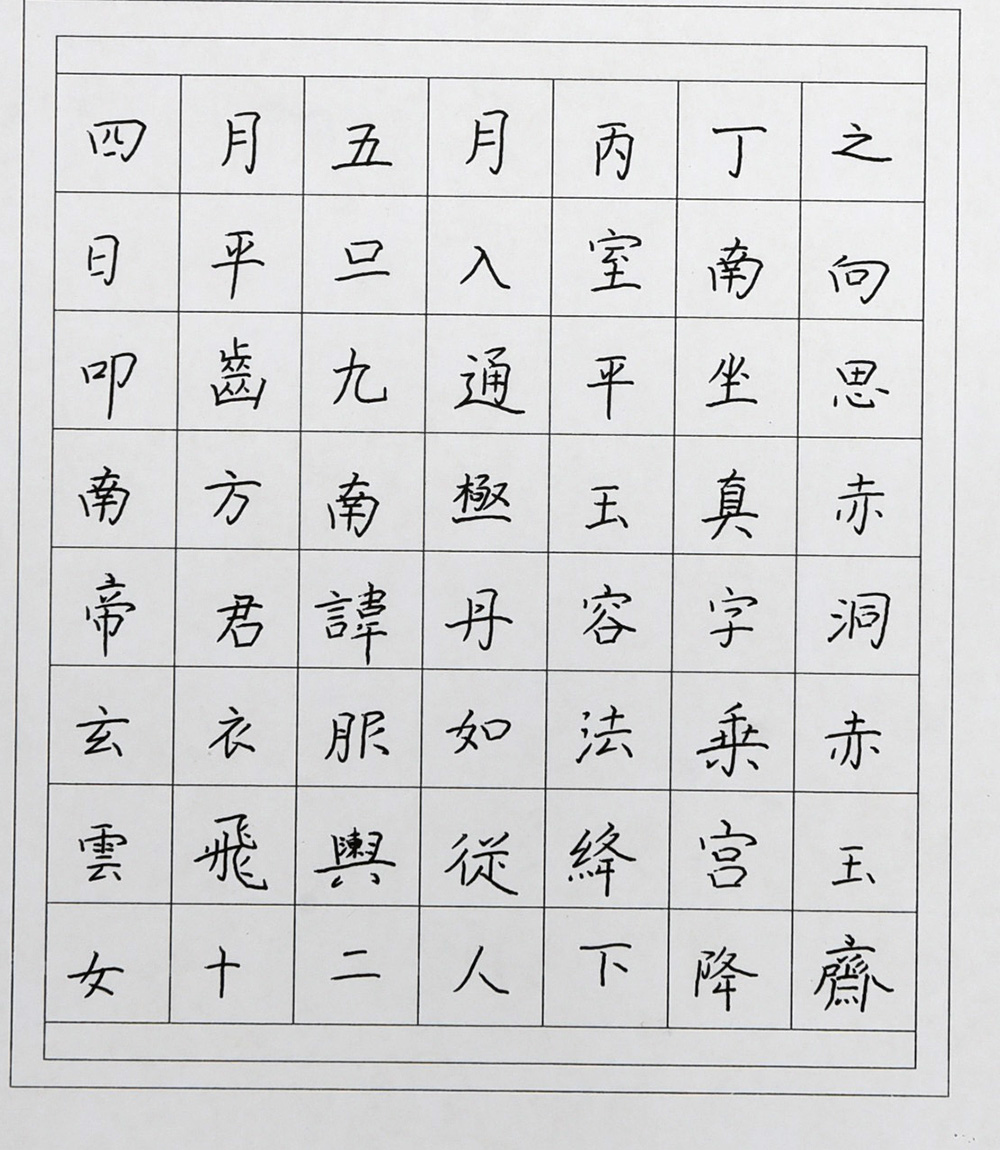 四月五月丙丁之
日平旦入室南向
叩齒九通平坐思
南方南極玉真赤
帝君諱丹容字洞
玄衣服如法乗赤
雲飛輿從絳宫玉
女十二人下降齋